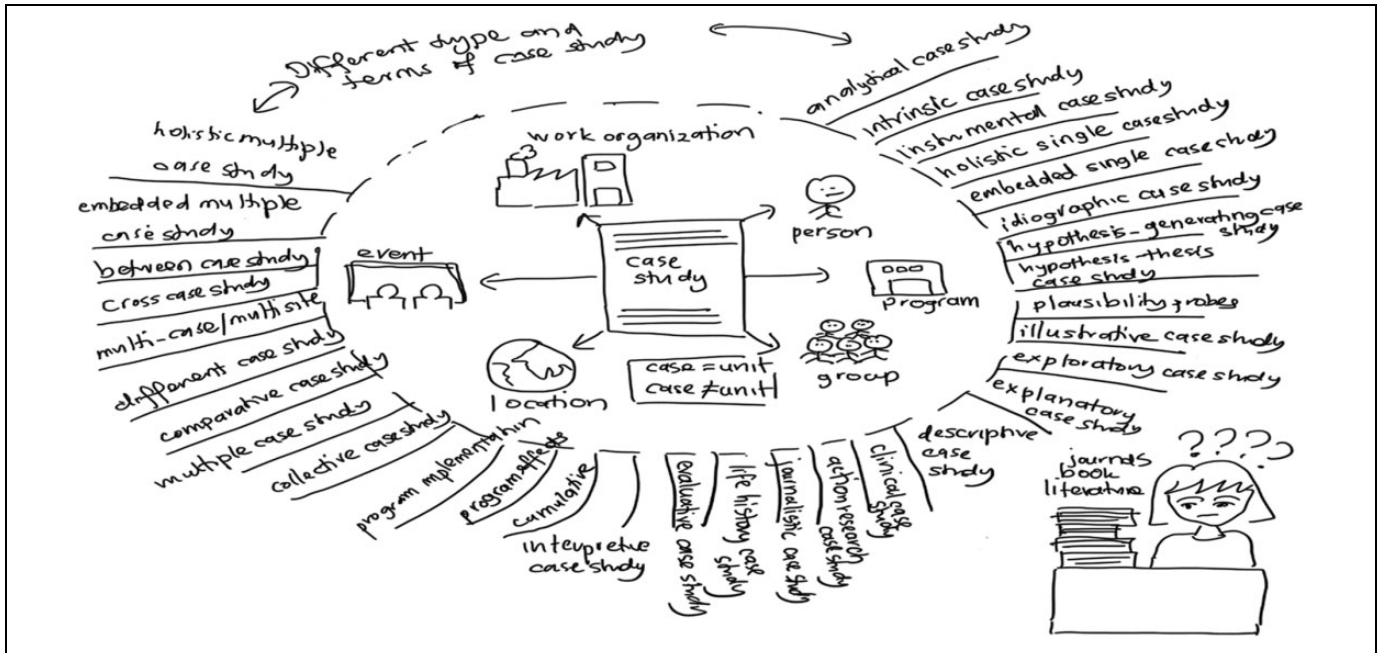 Different type and
terms of case study
analytical case study
intrinsic case study
instrumental case study
holistic single case study
embedded single case study
idiographic case study
hypothesis-generating case
study
hypothesis-thesis
case study
plausibility probes
illustrative case study
exploratory case study
explanatory
case study
descriptive
case
study
clinical case
study
action research
case study
journalistic case study
life history case
study
evaluative case study
interpretive
case study
cumulative
program effects
program implementation
collective case study
multiple case study
comparative case study
different case study
multi-case/multi site
cross case study
between case study
embedded multiple
case study
holistic multiple
case study
work organization
person
event
case
study
program
case = unit
case ≠ unit
group
location
????
journals
book
literature